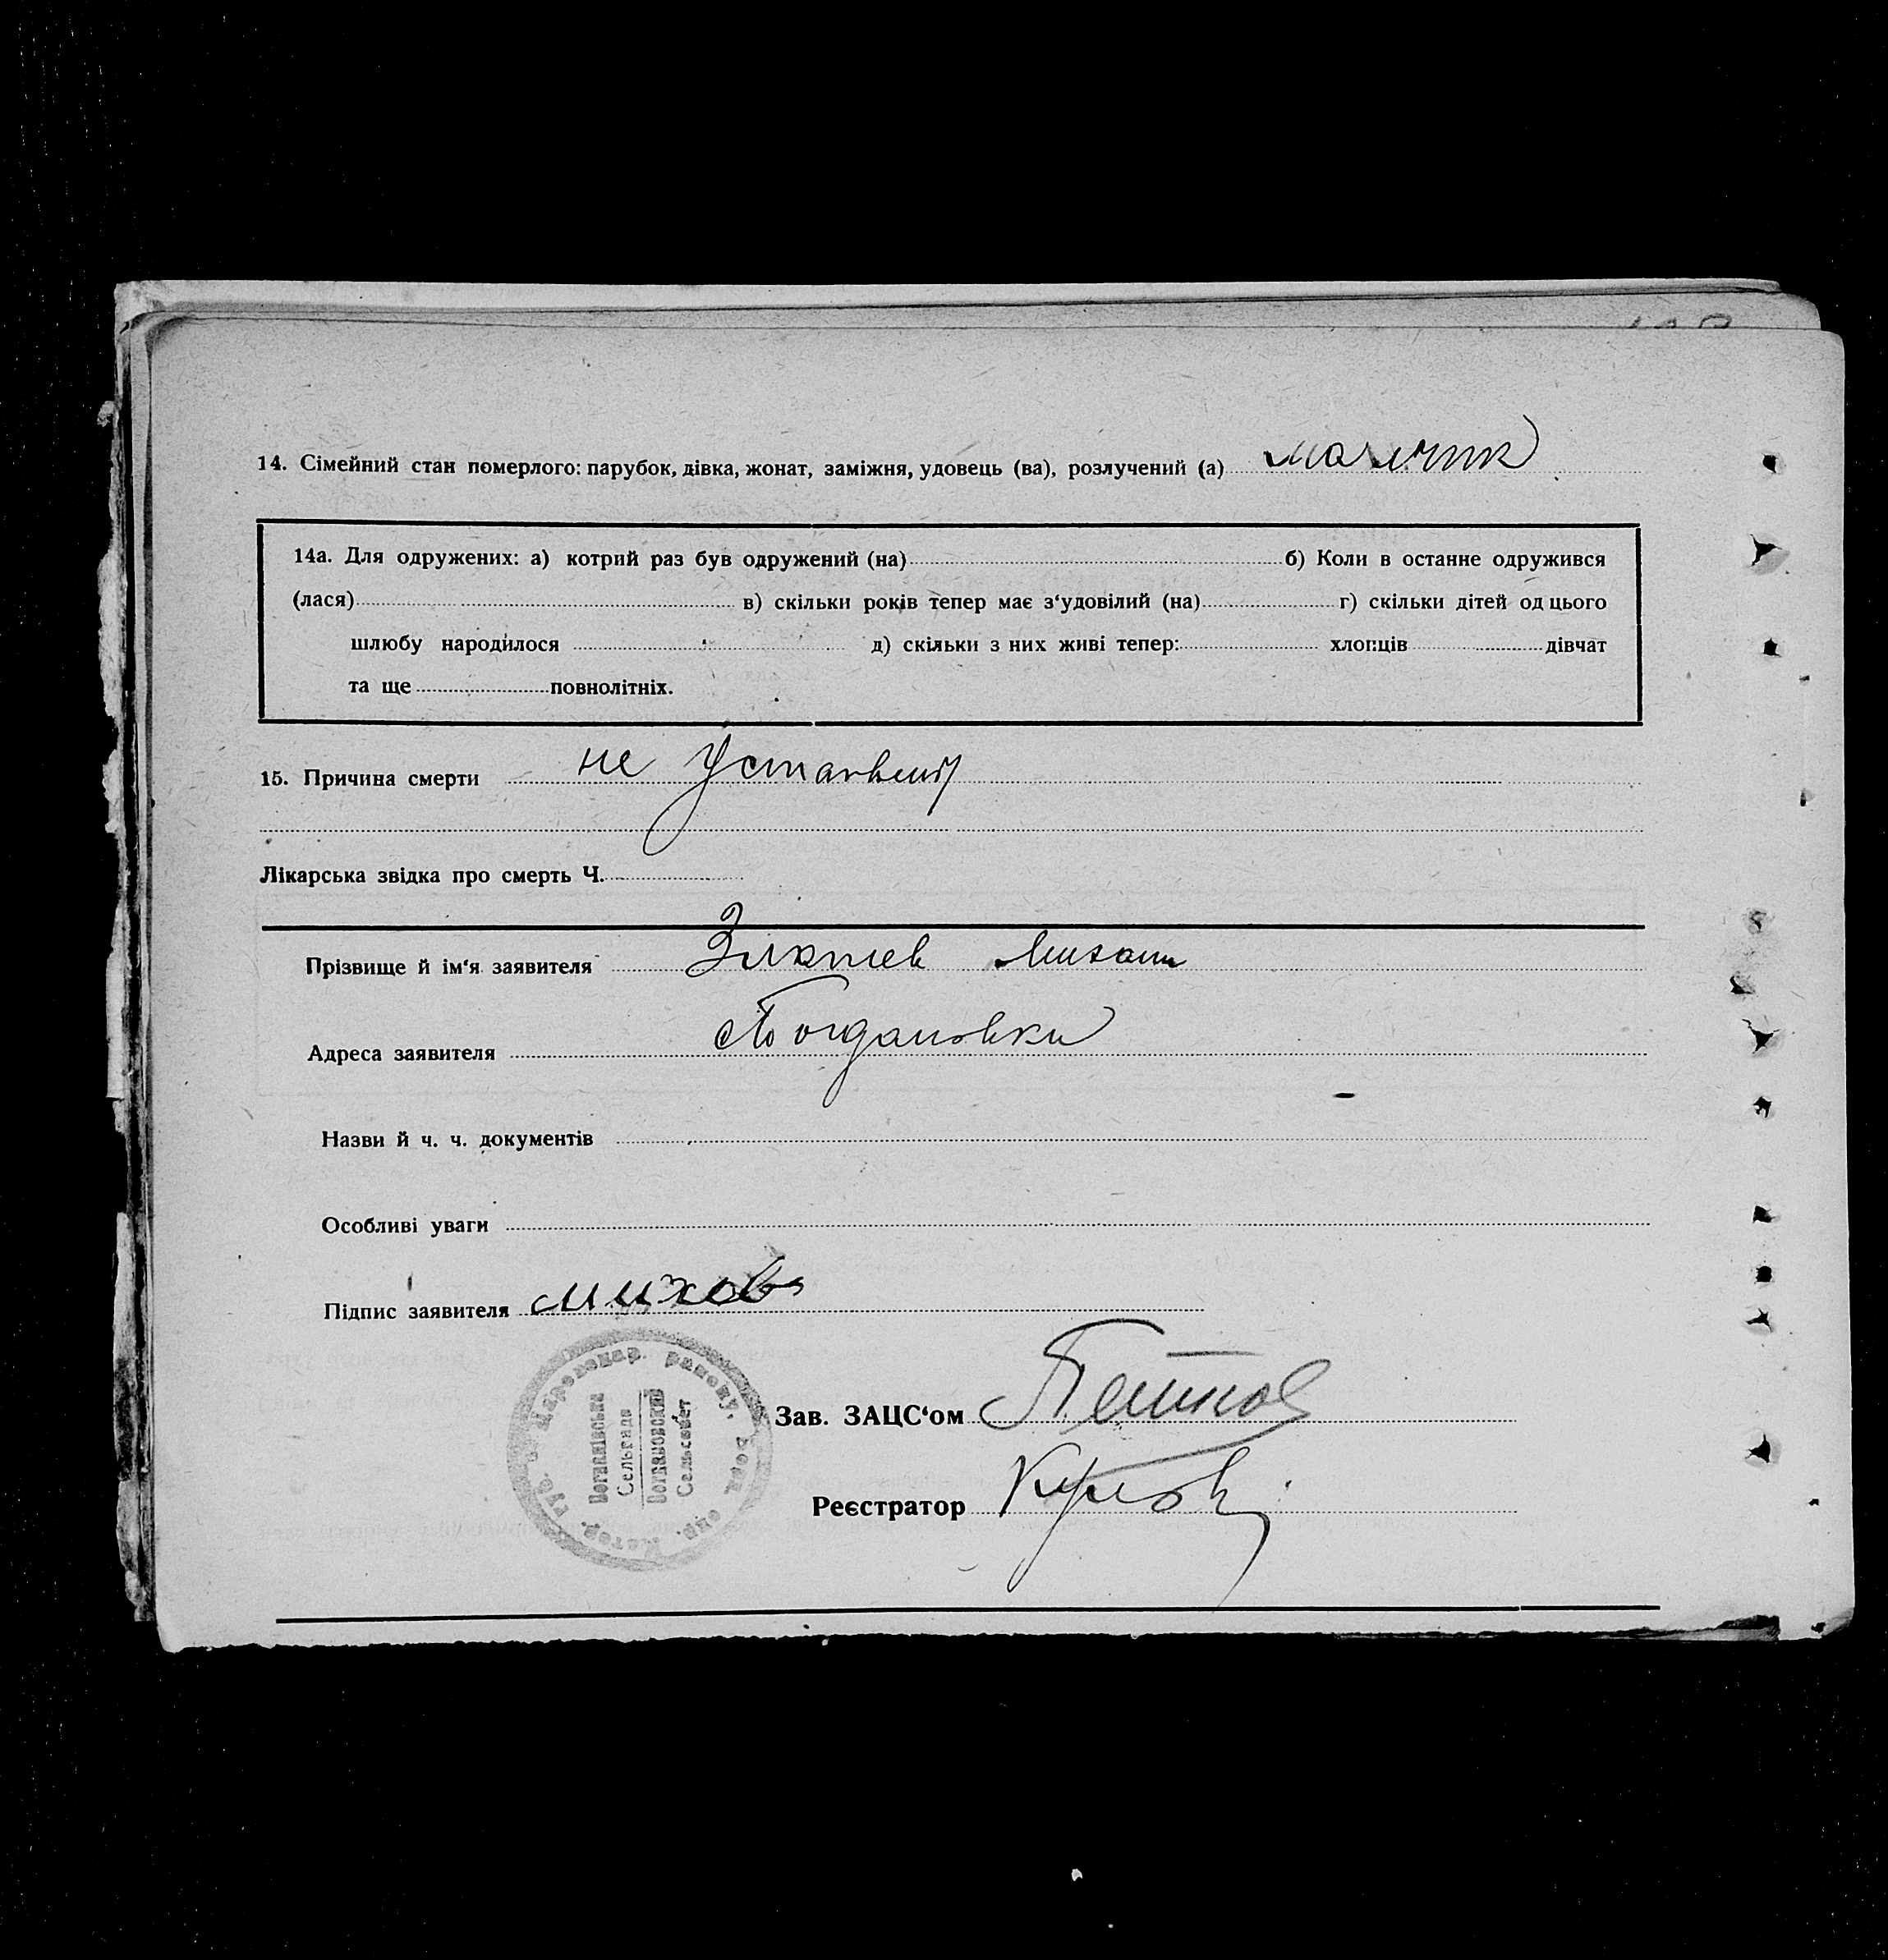 14. Сімейний стан померлого: парубок, дівка, жонат, заміжня, удовець (ва), розлучений (а) мальчик
14а. Для одружених: а) котрий раз був одружений (на) б) Коли в останне одружився
(лася) в) скільки років тепер має з‘удовілий (на) г) скільки дітей од цього
шлюбу народилося д) скільки з них живі тепер: хлопців дівчат
та ще повнолітніх.
15. Причина смерти не
Лікарська звідка про смерть Ч.
Прізвище й ім‘я заявителя Златев Михаил
Адреса заявителя Богдановки
Назви й ч. ч. документів
Особливі уваги
Підпис заявителя
Зав. ЗАЦС‘ом
Реєстратор
Сельрада
Сельсовет
району.